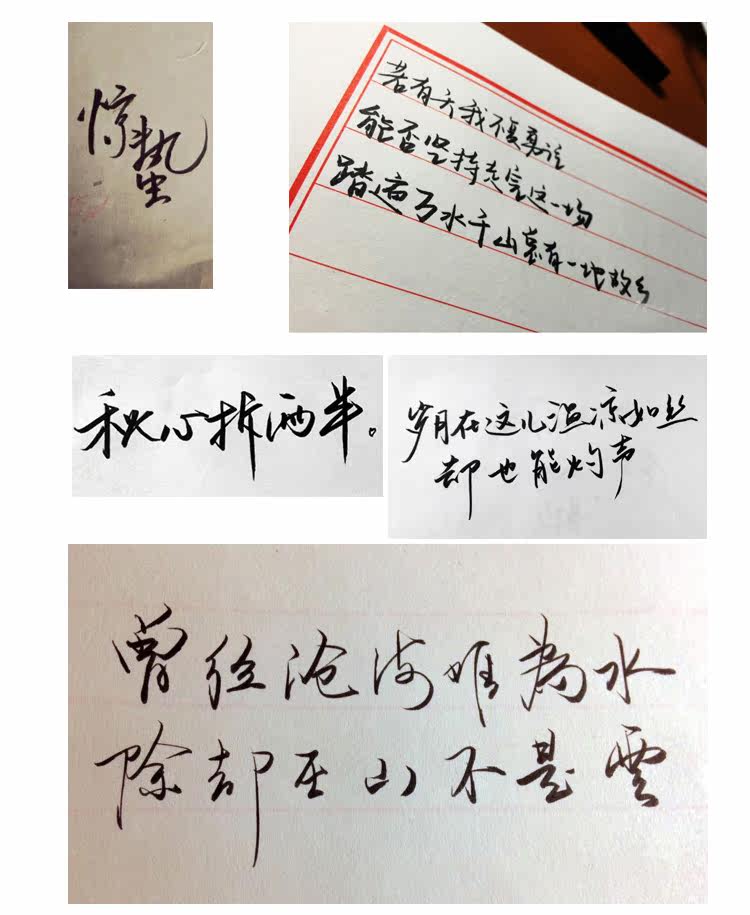 惊蛰
若有天我不复勇往
能否坚持走完这一场
踏遍了水千山总有一地故乡
秋心拆两半。
岁月在这儿温凉如丝
却也能灼声
曾经沧海难為水
除却巫山不是雲